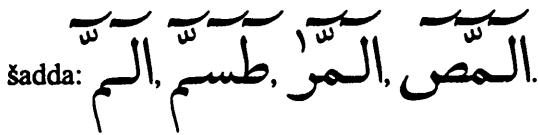 šadda: الٓـمّٓ, طٓسٓمّٓ, الٓـمّٓرٰ, الٓـمّٓصٓ.